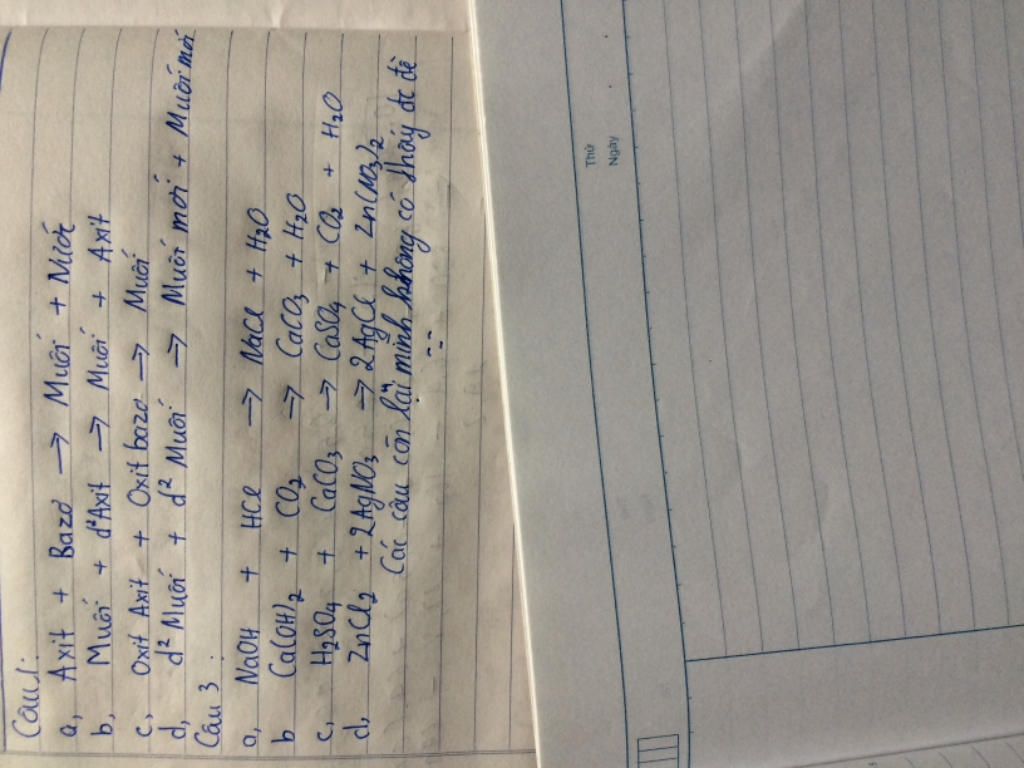 Câu 1:
a, Axit + Bazơ → Muối + Nước
b, Muối + d²Axit → Muối + Axit
c, Oxit Axit + Oxit bazơ → Muối
d, d² Muối + d² Muối → Muối mới + Muối mới
Câu 3
a, NaOH + HCl → NaCl + H₂O
b Ca(OH)₂ + CO₂ → CaCO₃ + H₂O
c, H₂SO₄ + CaCO₃ → CaSO₄ + CO₂ + H₂O
d, ZnCl₂ + 2AgNO₃ → 2AgCl + Zn(NO₃)₂
Các câu còn lại mình không có thấy đc đề
Thứ
Ngày